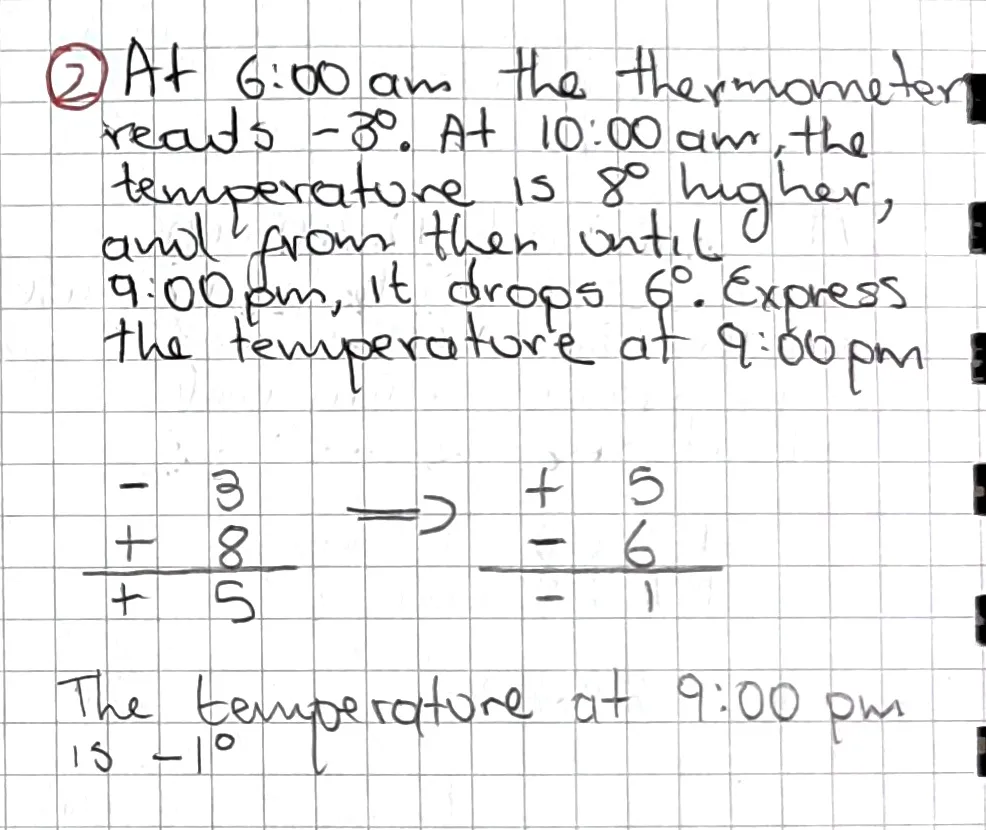 ② At 6:00 am the thermometer
reads -3°. At 10:00 am, the
temperature is 8° higher,
and from then until
9:00 pm, it drops 6°. Express
the temperature at 9:00 pm
- 3 ⇒ + 5
+ 8 - 6
+ 5 - 1
The temperature at 9:00 pm
is -1°